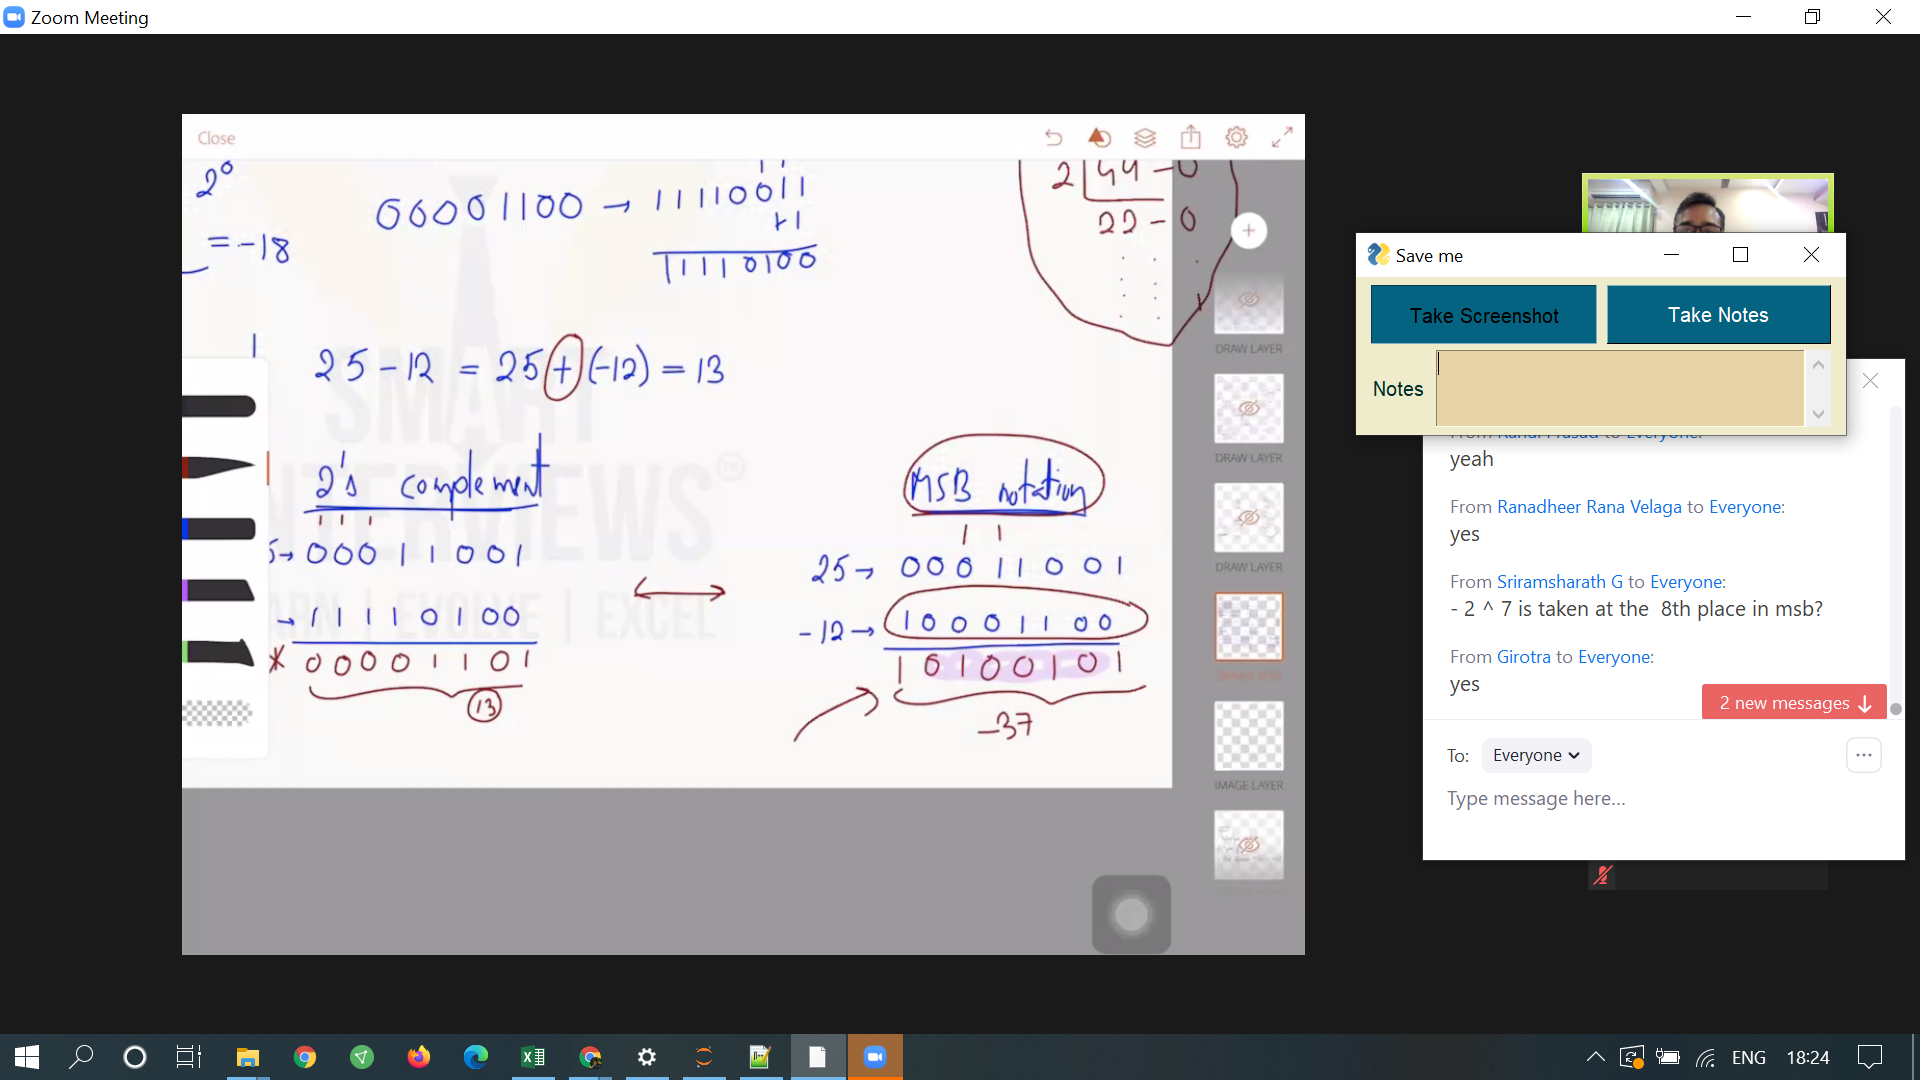 Zoom Meeting
Close
2⁰
= -18
00001100 → 11110011
+1
11110100
2 44 - 0
22 - 0
25 - 12 = 25 + (-12) = 13
SMART
INTERVIEWS
LEARN | EVOLVE | EXCEL
2's complement
1 1 1
5→ 00011001
→ 11110100
* 00001101
13
MSB notation
1 1
25→ 00011001
-12→ 10001100
10100101
-37
DRAW LAYER
DRAW LAYER
DRAW LAYER
IMAGE LAYER
Save me
Take Screenshot
Take Notes
Notes
yeah
From Ranadheer Rana Velaga to Everyone:
yes
From Sriramsharath G to Everyone:
- 2 ^ 7 is taken at the 8th place in msb?
From Girotra to Everyone:
yes
2 new messages ↓
To: Everyone
Type message here...
ENG
18:24